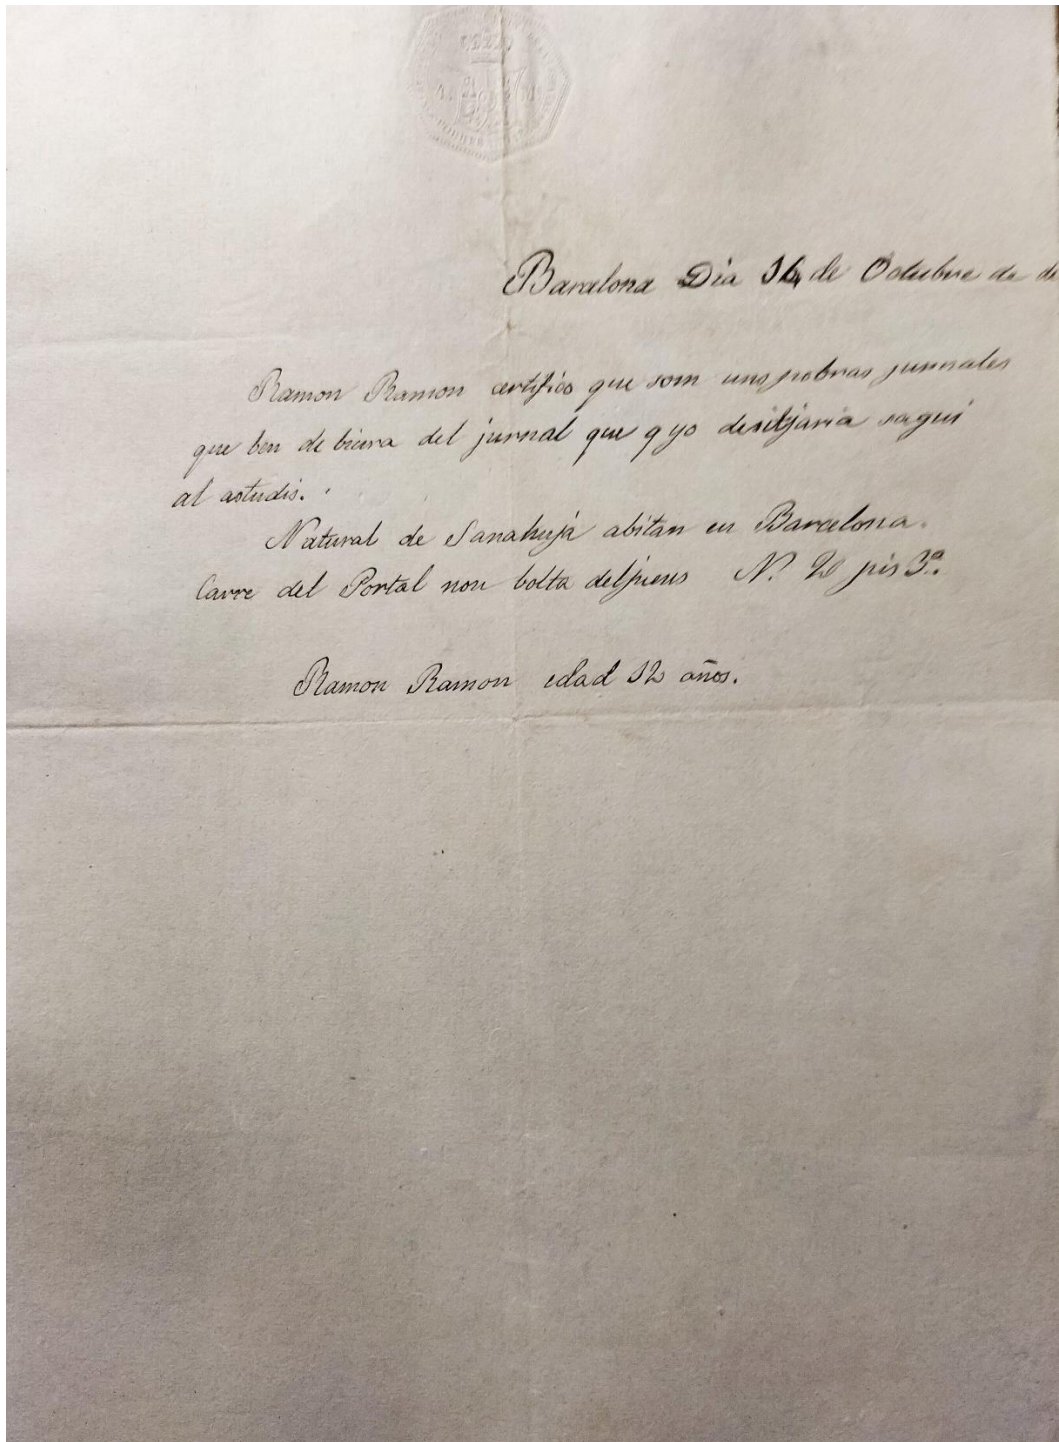 Barcelona Dia 14 de Octubre de de
Ramon Ramon certifico que som uns pobras jurnales
que ben de biura del jurnal que q yo desitjaria sagui
al astudis.
Natural de Sanahuja abitan en Barcelona.
Carre del Portal nou bolta deljueus Nº. 2 pis 3ª.
Ramon Ramon edad 12 años.